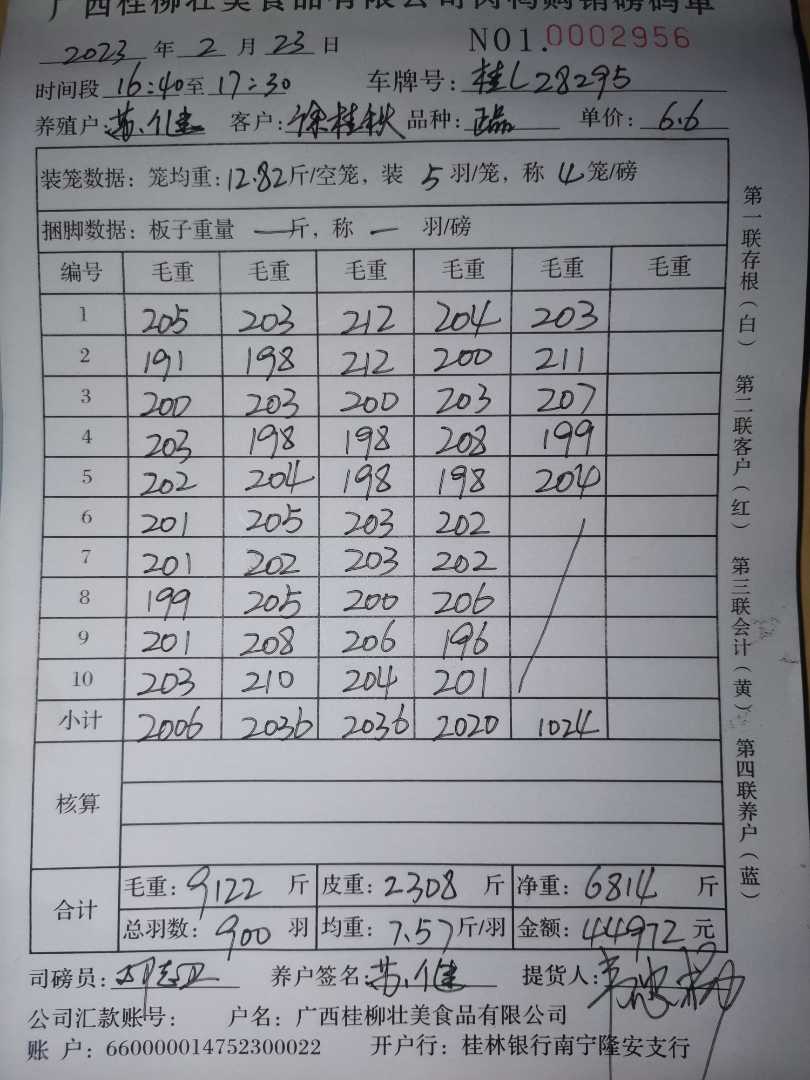 广西桂柳壮美食品有限公司肉鸭购销磅码单
2023 年 2 月 23 日 NO1.0002956
时间段 16:40 至 17:30 车牌号: 桂L28295
养殖户: 苏健 客户: 徐桂秋 品种: 单价: 6.6
装笼数据: 笼均重: 12.82 斤/空笼, 装 5 羽/笼, 称 4 笼/磅
捆脚数据: 板子重量 — 斤, 称 — 羽/磅
编号 毛重 毛重 毛重 毛重 毛重 毛重
1 205 203 212 204 203
2 191 198 212 200 211
3 200 203 200 203 207
4 203 198 198 208 199
5 202 204 198 198 204
6 201 205 203 202
7 201 202 203 202
8 199 205 200 206
9 201 208 206 196
10 203 210 204 201
小计 2006 2036 2036 2020 1024
核算
合计 毛重: 9122 斤 皮重: 2308 斤 净重: 6814 斤
总羽数: 900 羽 均重: 7.57 斤/羽 金额: 44972 元
司磅员: 养户签名: 苏健 提货人:
公司汇款账号: 户名: 广西桂柳壮美食品有限公司
账 户: 660000014752300022 开户行: 桂林银行南宁隆安支行
第一联存根(白) 第二联客户(红) 第三联会计(黄) 第四联养户(蓝)